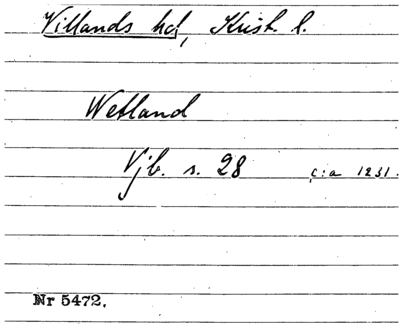 Villands hd, Krist. l.
Wetland
Vjb. s. 28 c:a 1231.
Nr 5472.